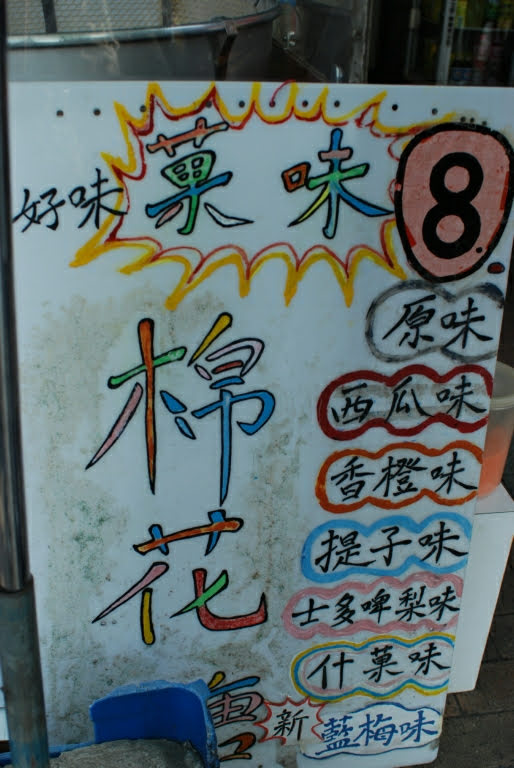 好味
菓味
8
棉花
原味
西瓜味
香橙味
提子味
士多啤梨味
什菓味
新
藍梅味